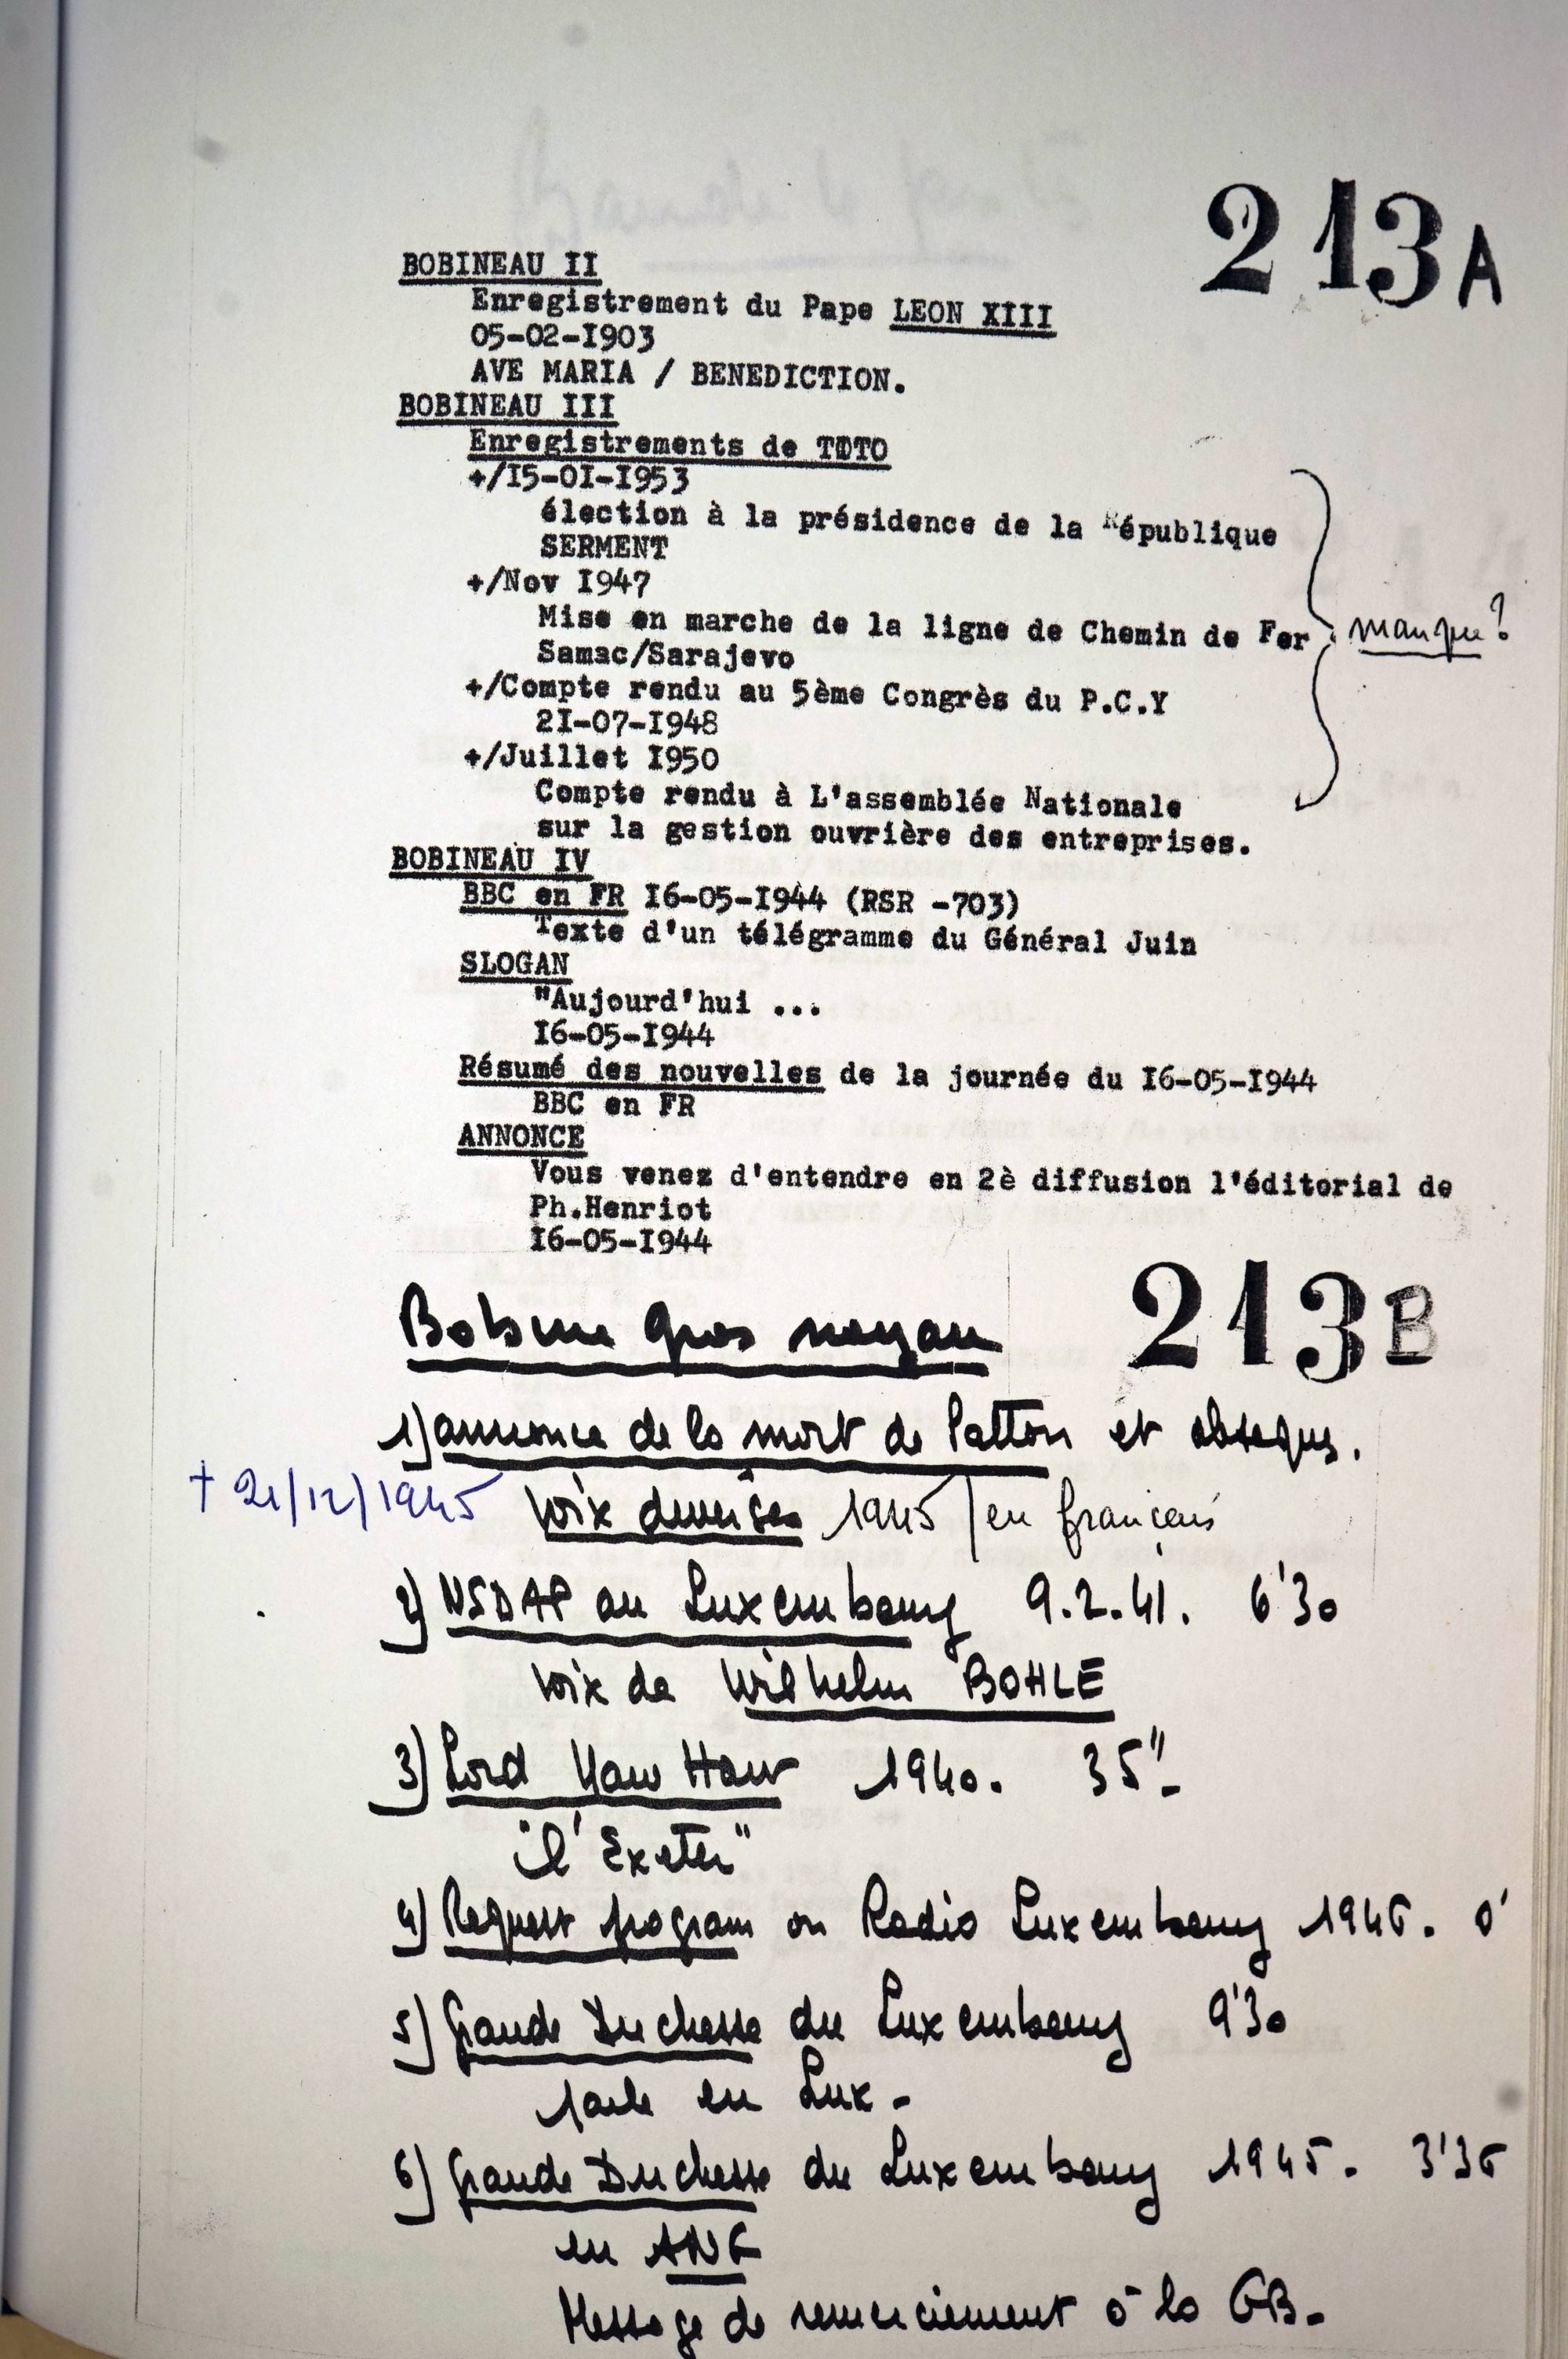 213A
BOBINEAU II
Enregistrement du Pape LEON XIII
05-02-I903
AVE MARIA / BENEDICTION.
BOBINEAU III
Enregistrements de TITO
+/I5-OI-I953
élection à la présidence de la République
SERMENT
+/Nov I947
Mise en marche de la ligne de Chemin de Fer
manque?
Samac/Sarajevo
+/Compte rendu au 5ème Congrès du P.C.Y
2I-07-I948
+/Juillet I950
Compte rendu à L'assemblée Nationale
sur la gestion ouvrière des entreprises.
BOBINEAU IV
BBC en FR I6-05-I944 (RSR -703)
Texte d'un télégramme du Général Juin
SLOGAN
"Aujourd'hui ...
I6-05-I944
Résumé des nouvelles de la journée du I6-05-I944
BBC en FR
ANNONCE
Vous venez d'entendre en 2è diffusion l'éditorial de
Ph.Henriot
I6-05-I944
213B
Bobine gros noyau
1) annonce de la mort de Patton et obsèques.
† 21/12/1945 voix diverses 1945 / en français
2) NSDAP au Luxembourg 9.2.41. 6'30
voix de Wilhelm BOHLE
3) Lord Haw Haw 1940. 35"
"l'Exeter"
4) Request program on Radio Luxembourg 1946. 0'
5) Grande Duchesse du Luxembourg 9'30
parle en Lux.
6) Grande Duchesse du Luxembourg 1945. 3'36
en ANG
Message de remerciement à la GB.